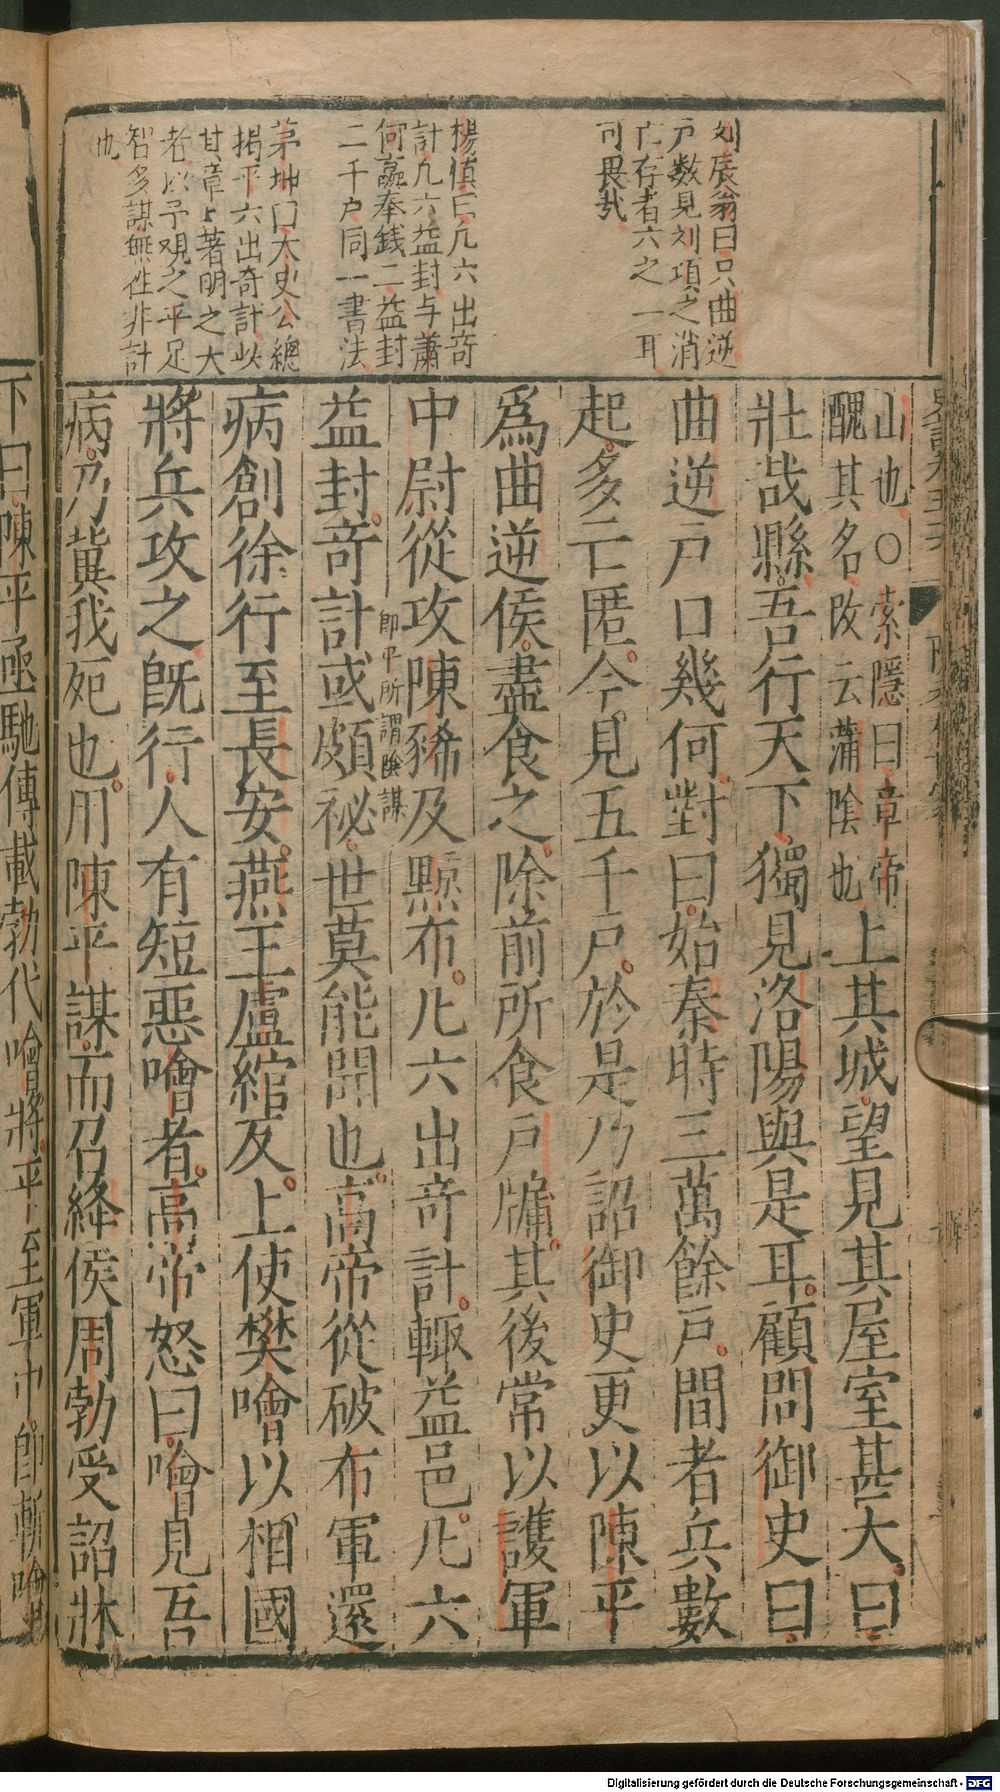 刘辰翁曰只曲逆
戸数見刘項之消
亡存者六之一耳
可畏哉
楊慎曰凢六出竒
計凢六益封与蕭
何羸奉銭二益封
二千户同一書法
茅坤曰太史公總
揭平六出奇計以
其章上著明之大
者以予观之平足
智多謀無徃非計
也
山也○索隱曰章帝
醜其名改云蒲陰也
上其城望見其屋室甚大曰
壯哉縣吾行天下獨見洛陽與是耳顧問御史曰
曲逆戸口幾何對曰始秦時三萬餘戸間者兵數
起多亡匿今見五千戸於是乃詔御史更以陳平
爲曲逆侯盡食之除前所食戸牖其後常以護軍
中尉從攻陳豨及黥布凢六出竒計輙益邑凢六
即平所謂陰謀
益封竒計或頗祕世莫能聞也高帝從破布軍還
病創徐行至長安燕王盧綰反上使樊噲以相國
將兵攻之旣行人有短惡噲者高帝怒曰噲見吾
病乃冀我死也用陳平謀而召絳侯周勃受詔牀
下曰陳平亟馳傳載勃代噲將平至軍中即斬噲
Digitalisierung gefördert durch die Deutsche Forschungsgemeinschaft - DFG